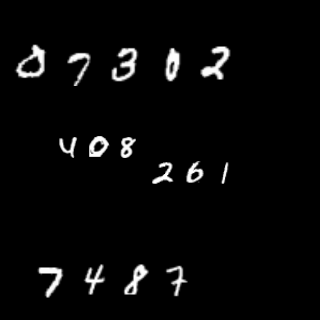 07302
408
261
7487